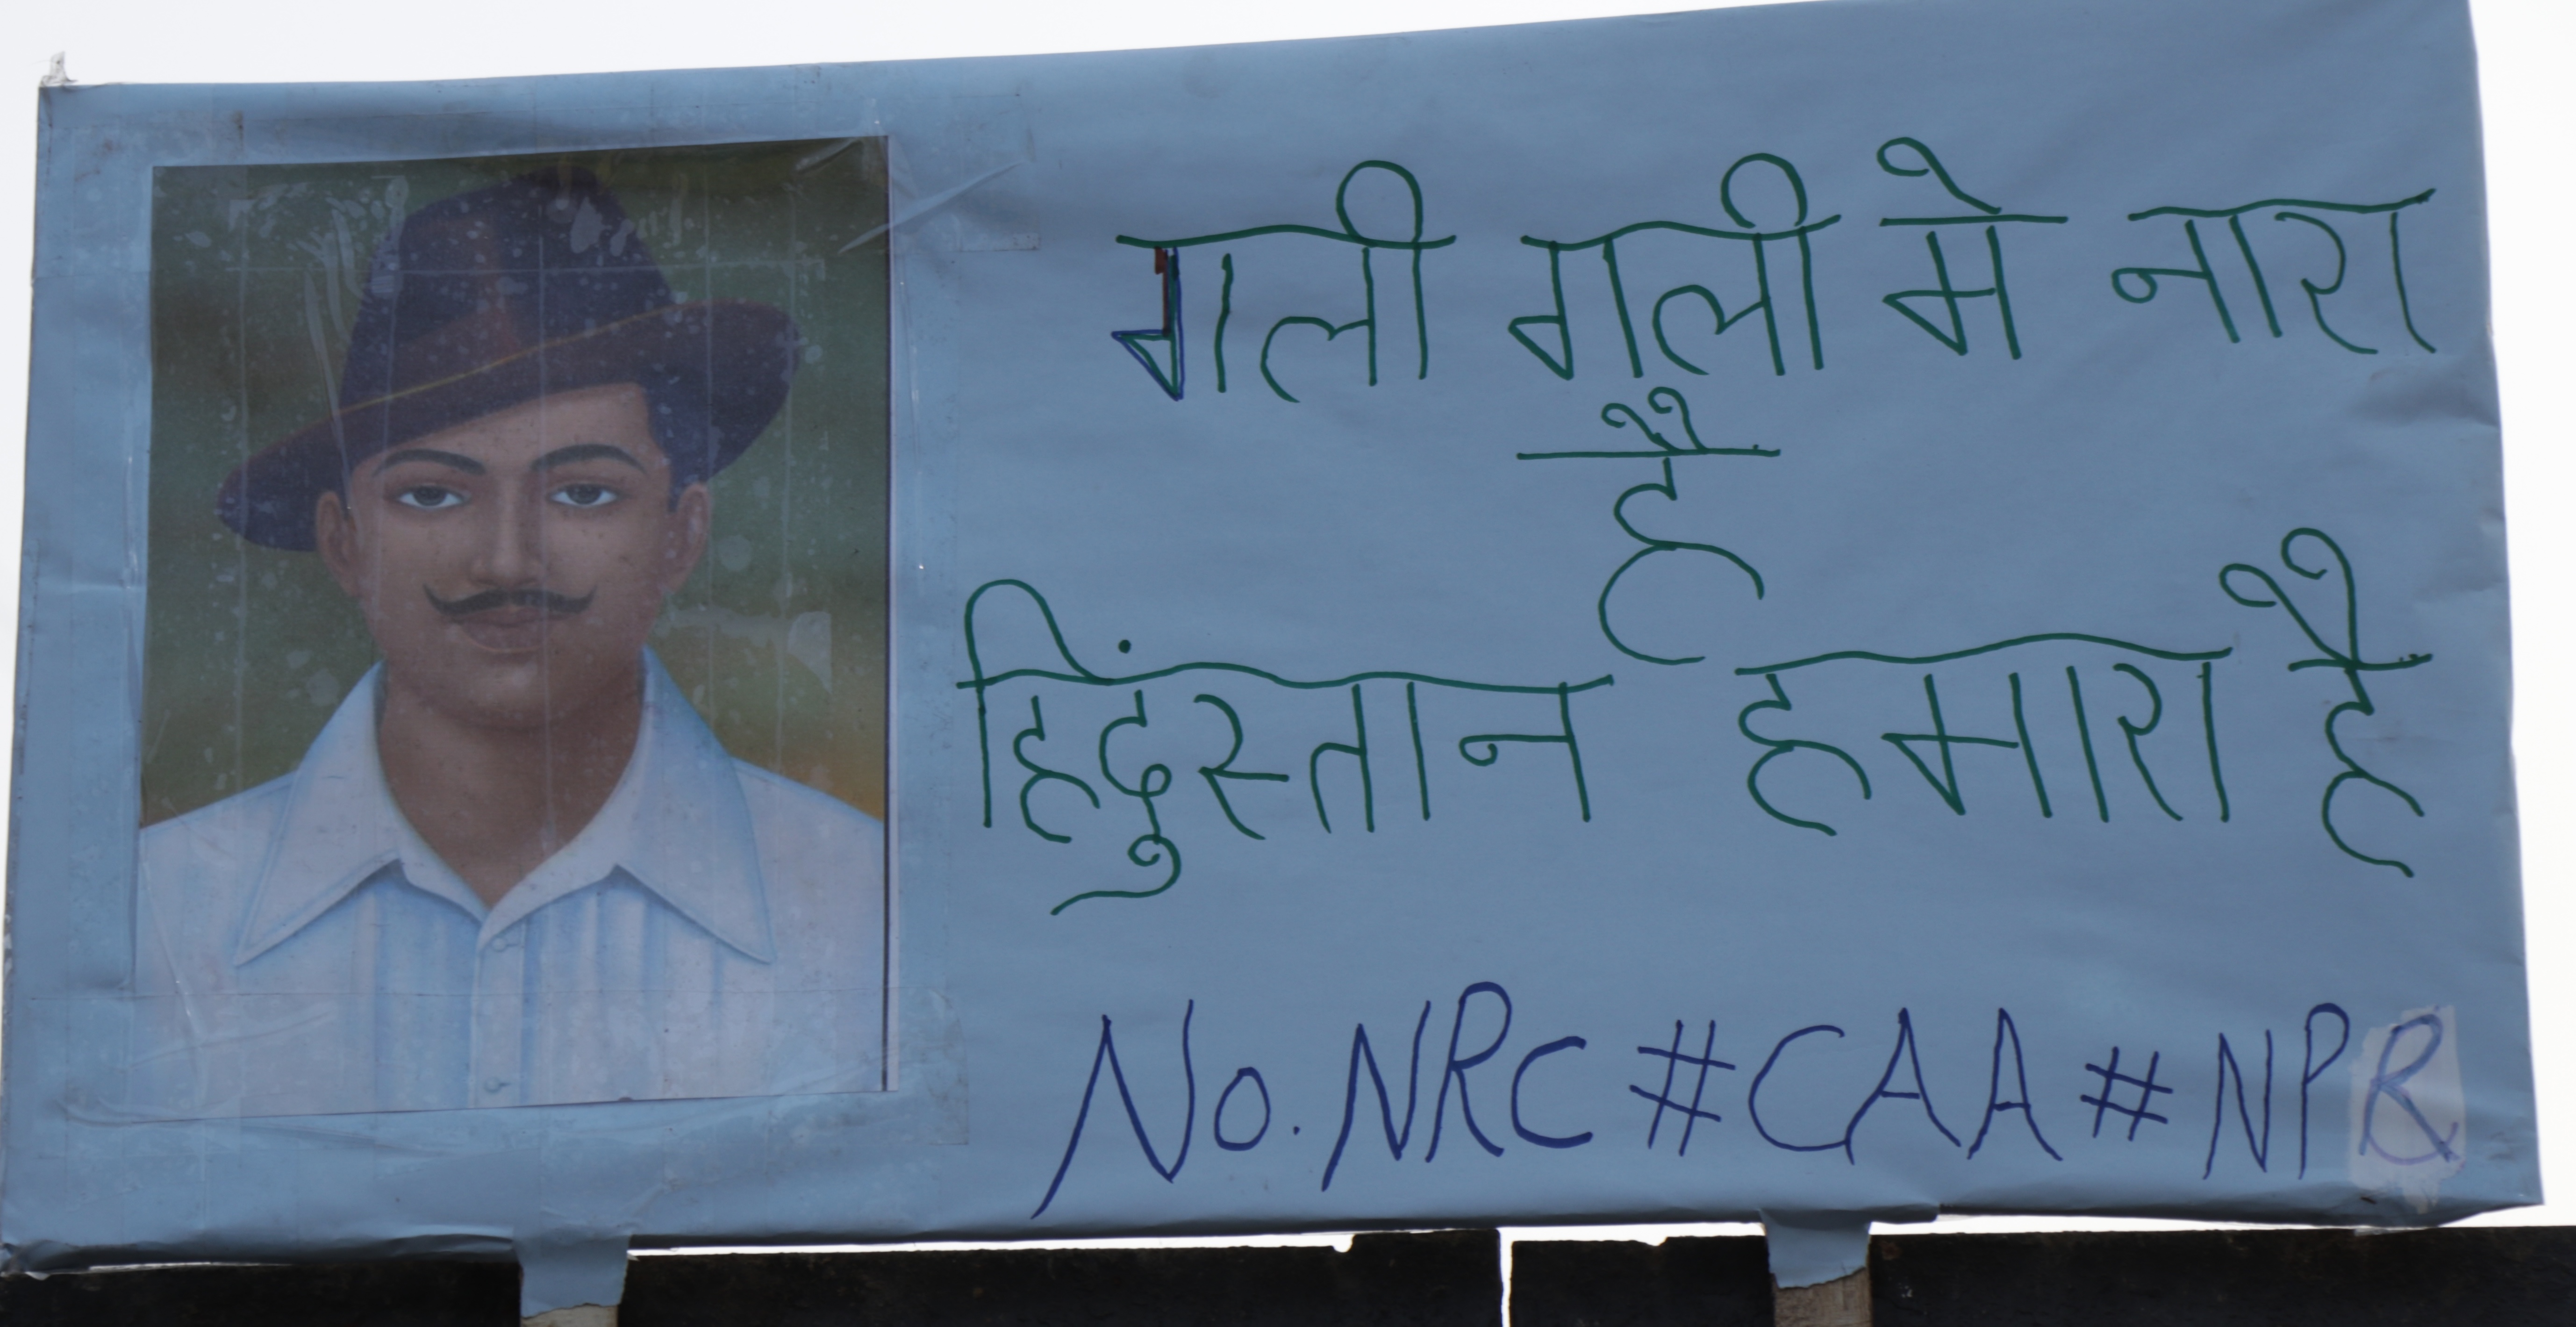 गली गली मे नारा
है
हिंदुस्तान हमारा है
No. NRC # CAA # NPR